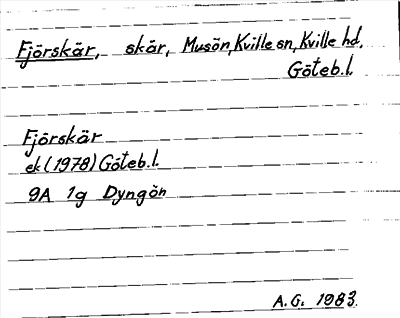 Fjörskär, skär, Musön, Kville sn, Kville hd,
Göteb.l.
Fjörskär
ek (1978) Göteb.l.
9A 1g Dyngön
A.G. 1983.